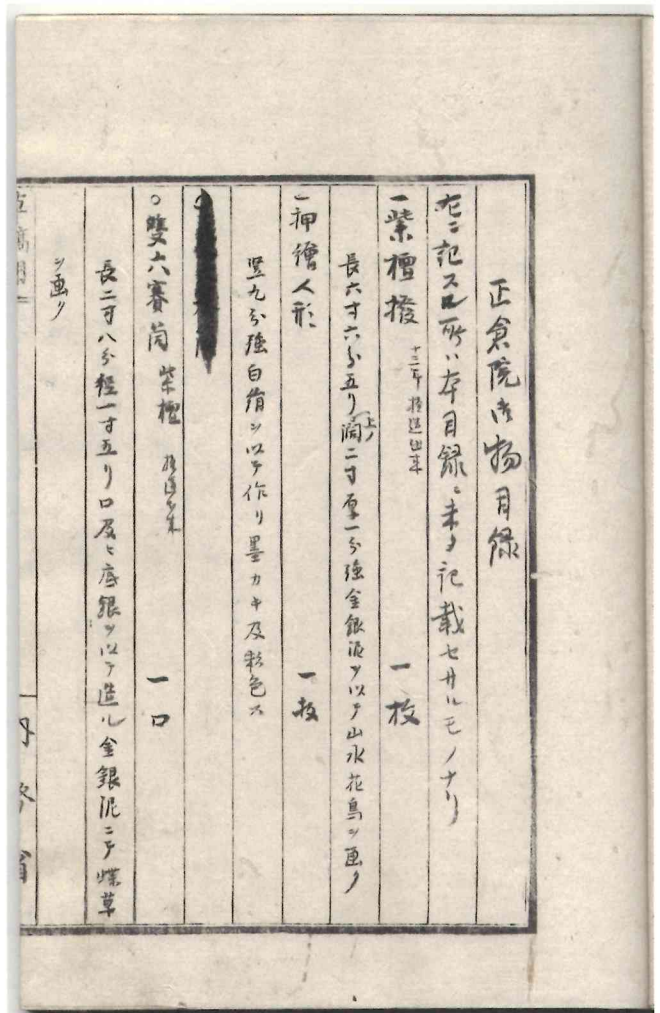 正倉院御物目録
左ニ記スル所ハ本目録ニ未タ記載セサルモノナリ
一紫檀撥 十三年模造出来 一枚
長六寸六分五リ濶上ノ二寸厚一分強金銀泥ヲ以テ山水花鳥ヲ画ク
一押繪人形 一枚
竪九分強白絹ヲ以テ作リ墨カキ及彩色ス
○雙六賽筒 紫檀 模造出来 一口
長二寸八分径一寸五リ口及ヒ底銀ヲ以テ造ル金銀泥ニテ蝶草
ヲ画ク
内務省